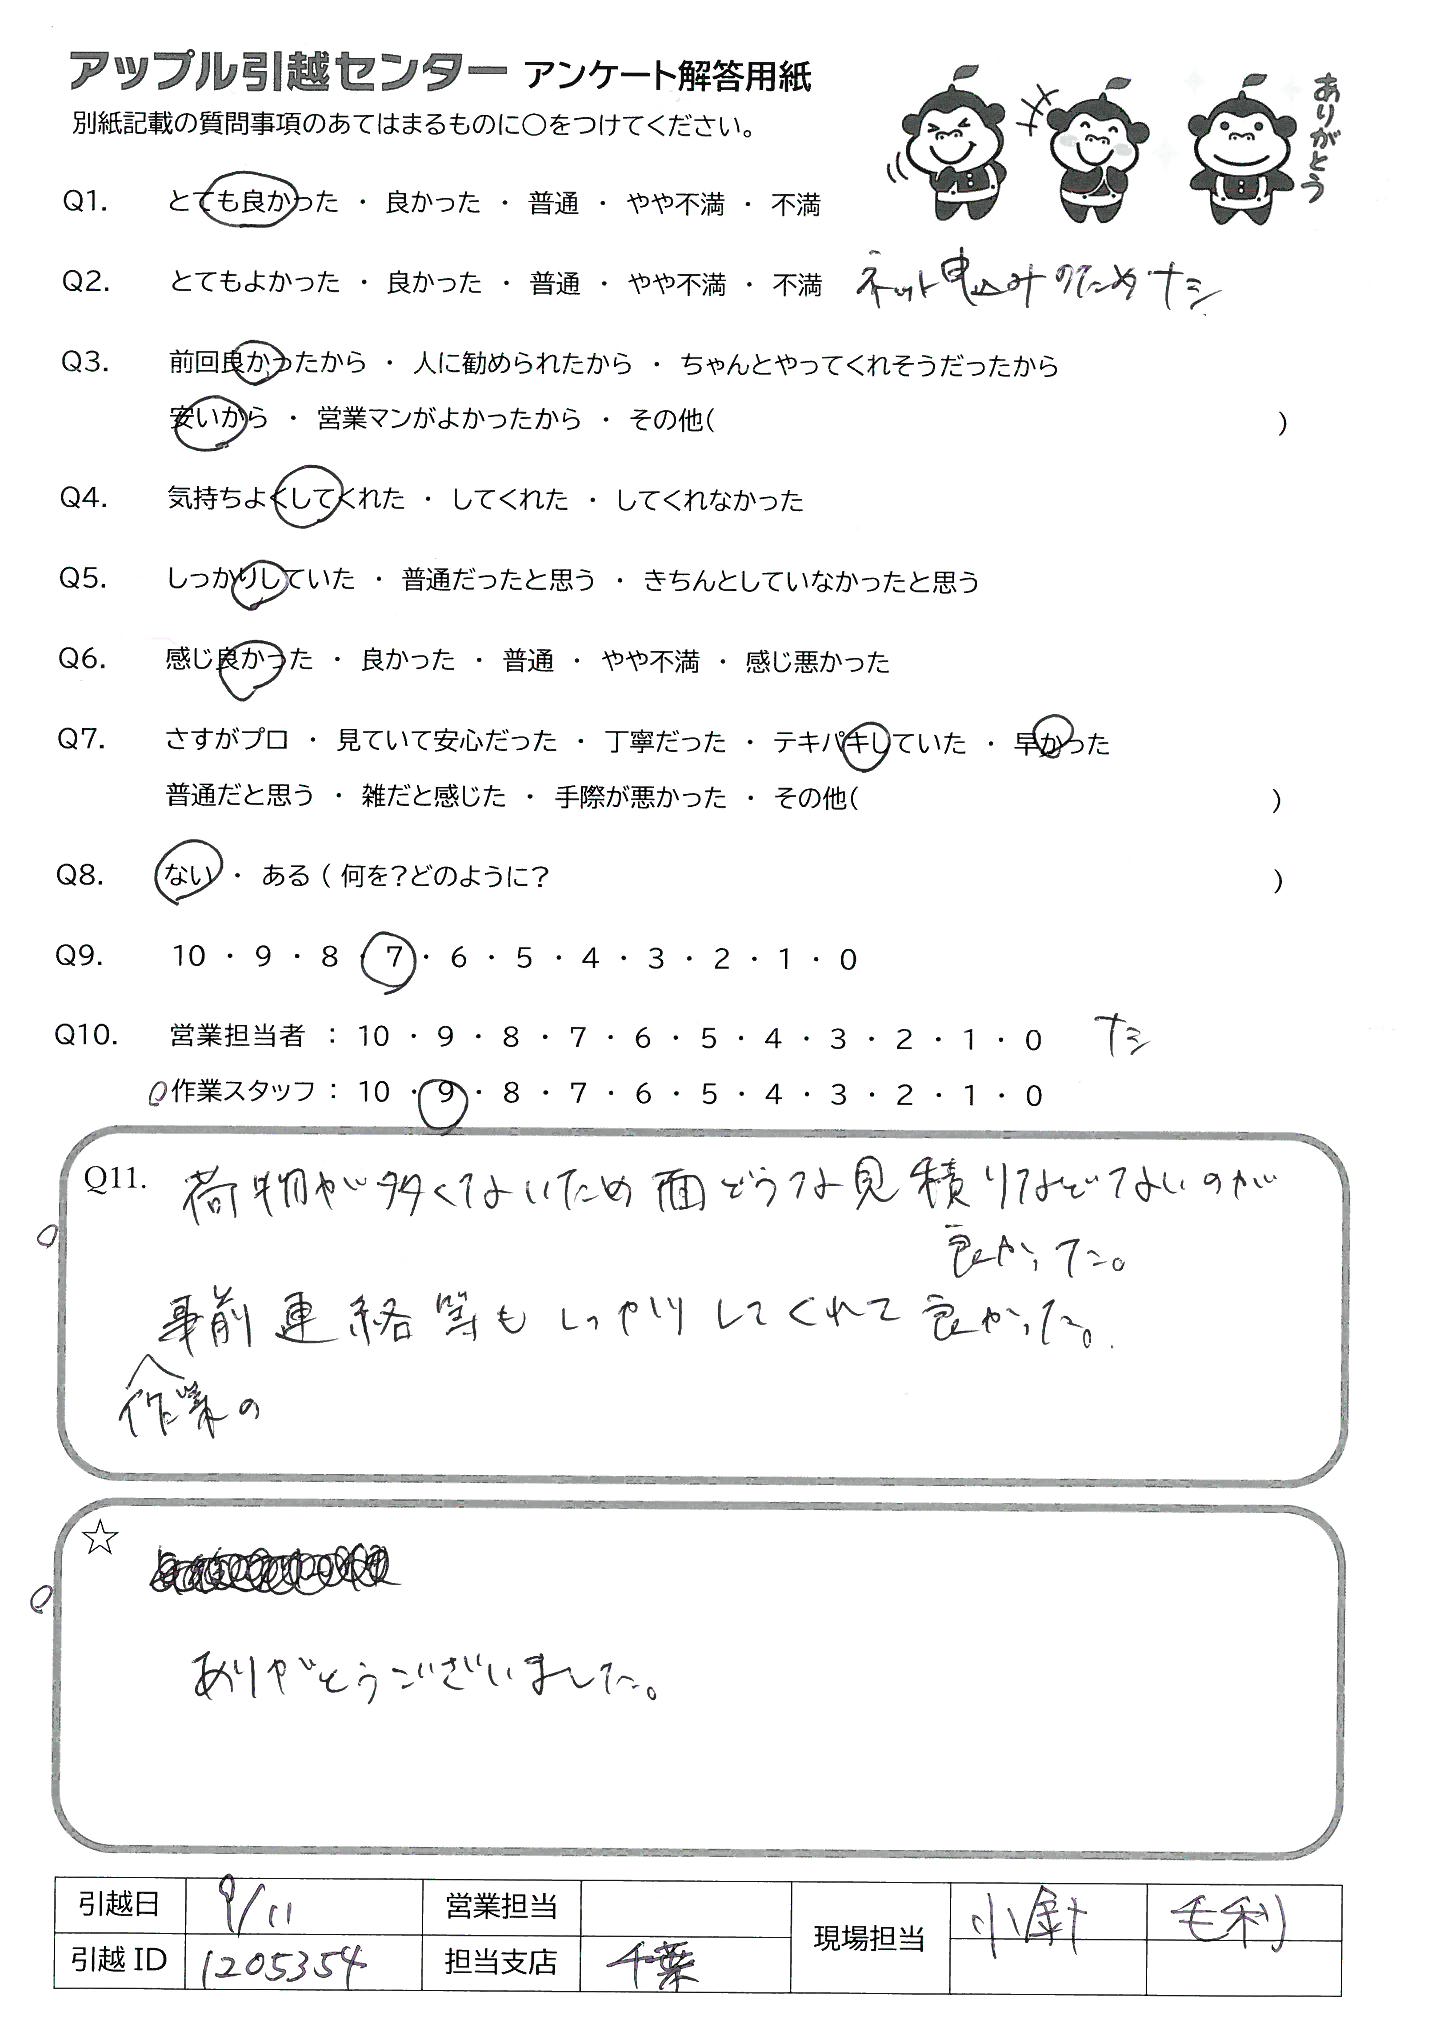 アップル引越センター アンケート解答用紙
別紙記載の質問事項のあてはまるものに○をつけてください。
ありがとう
Q1. とても良かった ・ 良かった ・ 普通 ・ やや不満 ・ 不満
Q2. とてもよかった ・ 良かった ・ 普通 ・ やや不満 ・ 不満 ネット申込みのためナシ
Q3. 前回良かったから ・ 人に勧められたから ・ ちゃんとやってくれそうだったから
安いから ・ 営業マンがよかったから ・ その他( )
Q4. 気持ちよくしてくれた ・ してくれた ・ してくれなかった
Q5. しっかりしていた ・ 普通だったと思う ・ きちんとしていなかったと思う
Q6. 感じ良かった ・ 良かった ・ 普通 ・ やや不満 ・ 感じ悪かった
Q7. さすがプロ ・ 見ていて安心だった ・ 丁寧だった ・ テキパキしていた ・ 早かった
普通だと思う ・ 雑だと感じた ・ 手際が悪かった ・ その他( )
Q8. ない ・ ある ( 何を?どのように? )
Q9. 10 ・ 9 ・ 8 ・ 7 ・ 6 ・ 5 ・ 4 ・ 3 ・ 2 ・ 1 ・ 0
Q10. 営業担当者 : 10 ・ 9 ・ 8 ・ 7 ・ 6 ・ 5 ・ 4 ・ 3 ・ 2 ・ 1 ・ 0 ナシ
作業スタッフ : 10 ・ 9 ・ 8 ・ 7 ・ 6 ・ 5 ・ 4 ・ 3 ・ 2 ・ 1 ・ 0
Q11. 荷物が多くないため面どうな見積りなどないのが
良かった。
事前連絡等もしっかりしてくれて良かった。
作業の
☆
ありがとうございました。
引越日 9/11 営業担当 現場担当 小針 毛利
引越ID 1205354 担当支店 千葉